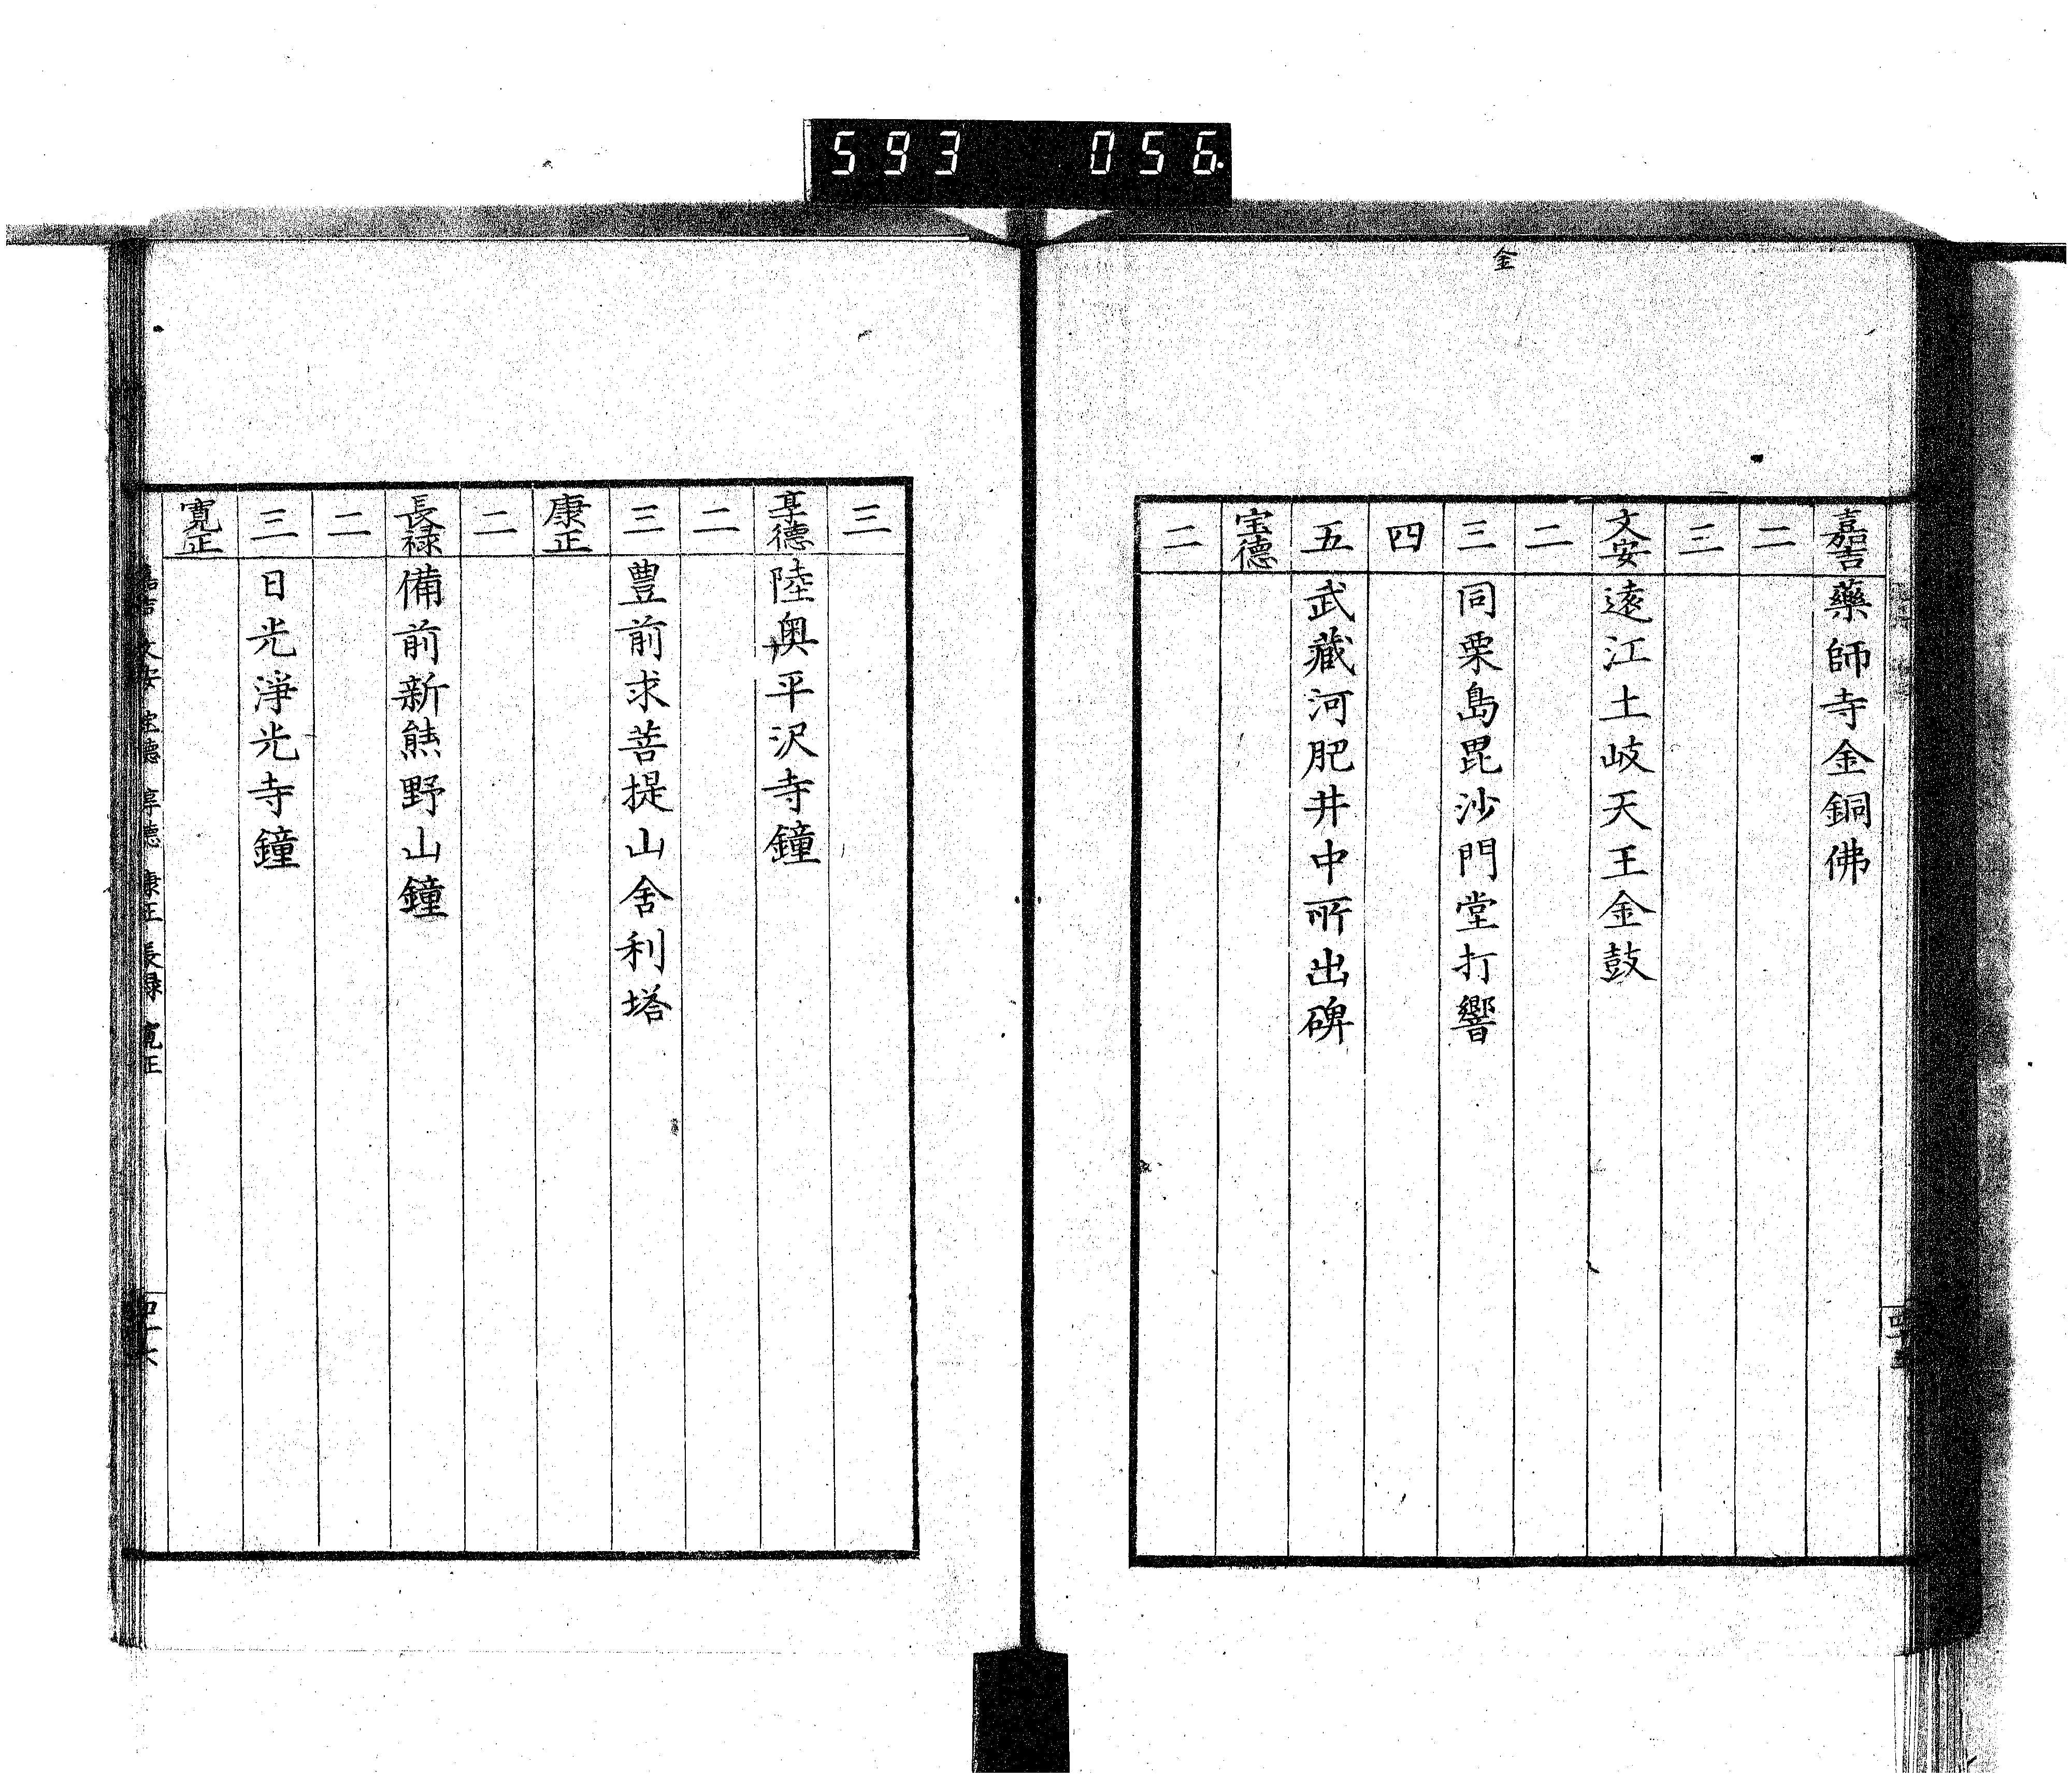 593 056
金
嘉吉 藥師寺金銅佛
二
三
文安 遠江土岐天王金鼓
二
三 同栗島毘沙門堂打響
四
五 武藏河肥井中所出碑
宝德
二
三
享德 陸奥平沢寺鐘
二
三 豊前求菩提山舍利塔
康正
二
長禄 備前新熊野山鐘
二
三 日光淨光寺鐘
寛正
嘉吉 文安 宝德 享德 康正 長禄 寛正
四十六